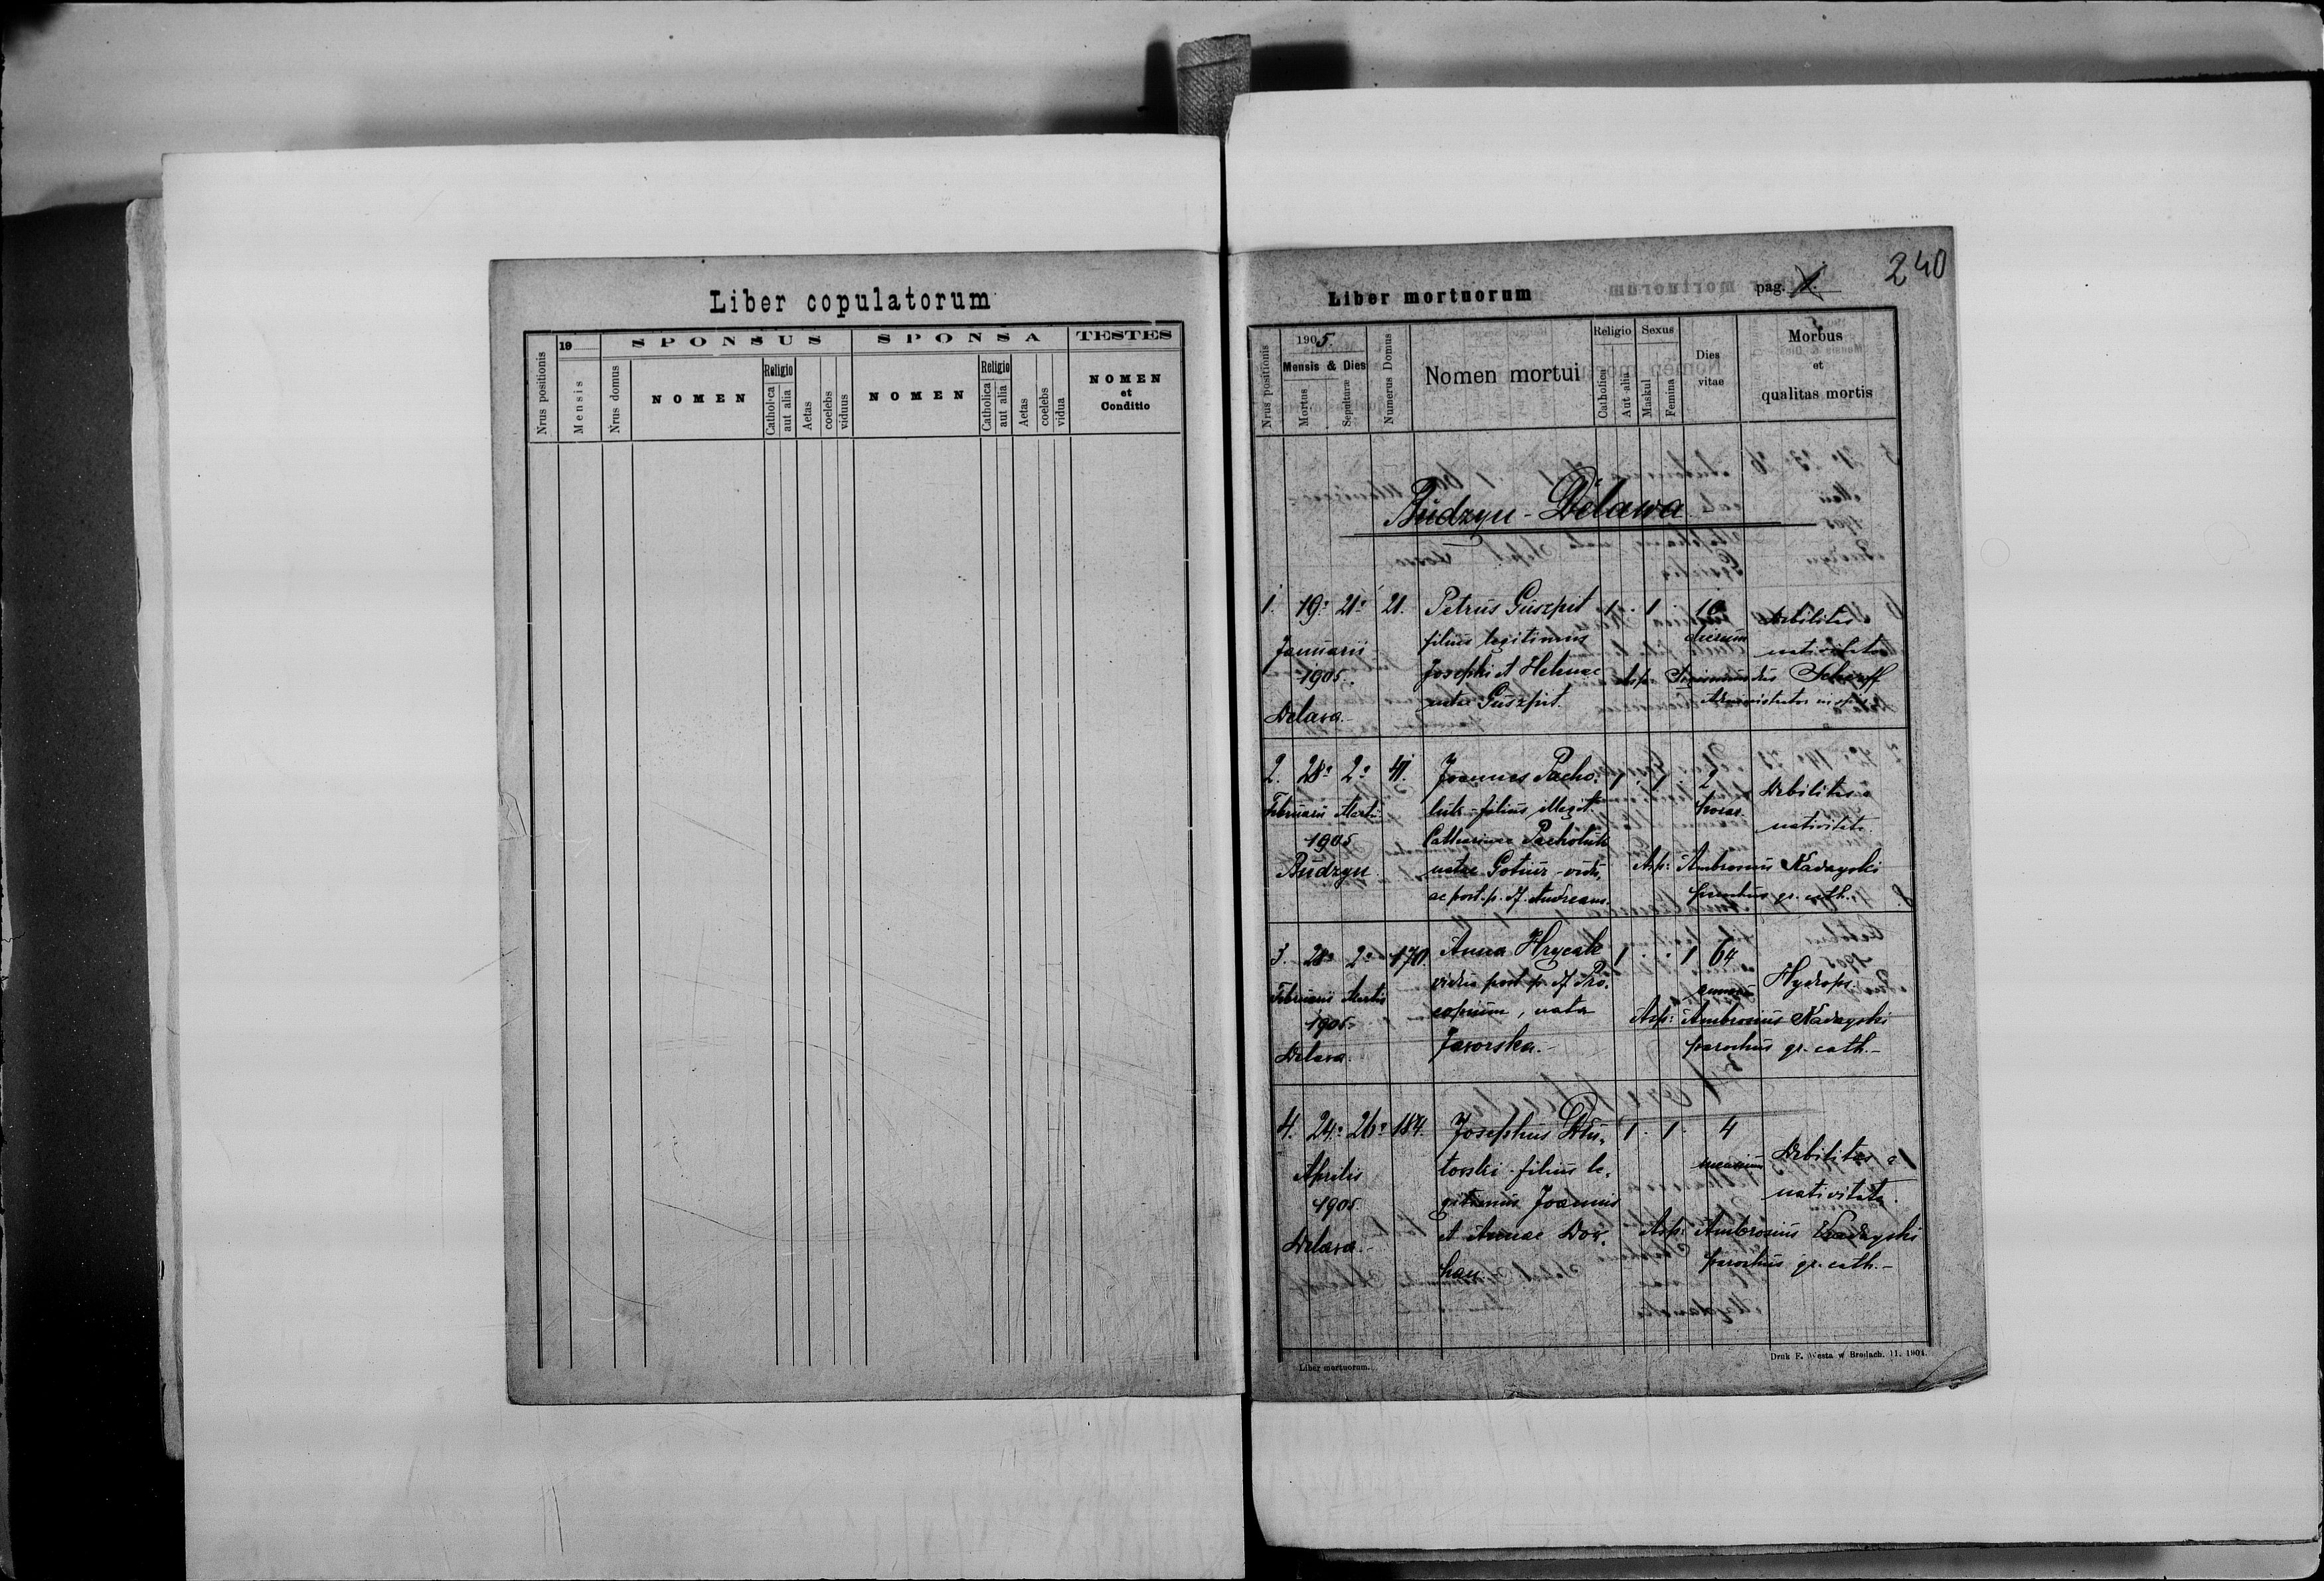 Liber copulatorum
Nrus positionis
19
Mensis
Nrus domus
SPONSUS
NOMEN
Religio
Catholica
aut alia
Aetas
coelebs
viduus
SPONSA
NOMEN
Religio
Catholica
aut alia
Aetas
coelebs
vidua
TESTES
NOMEN
et
Conditio
240
Liber mortuorum
pag. 1.
Nrus positionis
1905.
Mensis & Dies
Mortus
Sepulturæ
Numerus Domus
Nomen mortui
Religio
Catholica
Aut alia
Sexus
Maskul
Femina
Dies
vitae
Morbus
et
qualitas mortis
Budzyn - Delawa
1. 19. 21. 21. Petrus Guszpit 1. 1 10 Debilitas a
filius legitimus dierum
Januarii nativitate
1905. Josephi et Helenae Asp. Sigismundus Scharff
natae Guszpit. Administrator
Delava.
2. 28. 2. 41. Joannes Pacho- 1. 1. 2 Debilitas a
Februarii Martii luk - filius illegit. horas
1905 Catharinae Pacholuk nativitate
Budzyn natae vidu- Asp: Ambrosius Kadayski
ae post. p. df. Andream. parochus gr. cath.
3. 28. 2. 170. Anna Hrycak 1. 1 64 Hydrops.
Februarii Martii vidua post p. df. Pro- annos
1905 copium, nata Asp: Ambrosius Kadayski
Delava. Javorska. - parochus gr. cath. -
4. 24. 26. 184. Josephus 1. 1. 4 Debilitas a
towski - filius le- mensium
Aprilis nativitate.
1905. gitimus Joannis
Delava. - et Annae Dow- Asp: Ambrosius Kadayski
han. parochus gr. cath. -
Liber mortuorum.
Druk F. Westa w Brodach. 11. 1904.